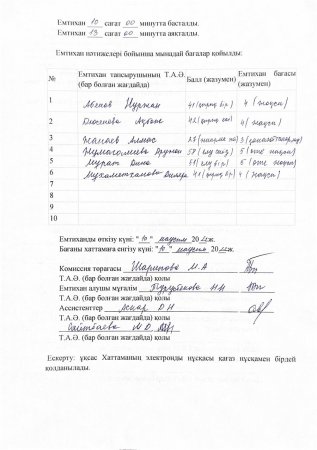 Емтихан 10 сағат 00 минутта басталды.
Емтихан 13 сағат 00 минутта аяқталды.
Емтихан нәтижелері бойынша мынадай бағалар қойылды:
№ Емтихан тапсырушының Т.А.Ә. (бар болған жағдайда) Балл (жазумен) Емтихан бағасы (жазумен)
1 Абенов Нуржан 41 (қырық бір) 4 (жақсы)
2 42 (қырық екі) 4 (жақсы)
3 Жапаев Алмас 3
4 5 (өте жақсы)
5 Мурат Дина 51 (елу бір) 5 (өте жақсы)
6 Мухаметжанова 41 (қырық бір) 4 (жақсы)
7
8
9
10
Емтиханды өткізу күні: "10" маусым 20 ж.
Бағаны хаттамаға енгізу күні: "10" маусым 20 ж.
Комиссия төрағасы Шарипова М.А
Т.А.Ә. (бар болған жағдайда) қолы
Емтихан алушы мұғалім Н.Н
Т.А.Ә. (бар болған жағдайда) қолы
Ассистенттер Асқар Д.Н
Т.А.Ә. (бар болған жағдайда) қолы
М.О.
Т.А.Ә. (бар болған жағдайда) қолы
Ескерту: ұқсас Хаттаманың электронды нұсқасы қағаз нұсқамен бірдей
қолданылады.